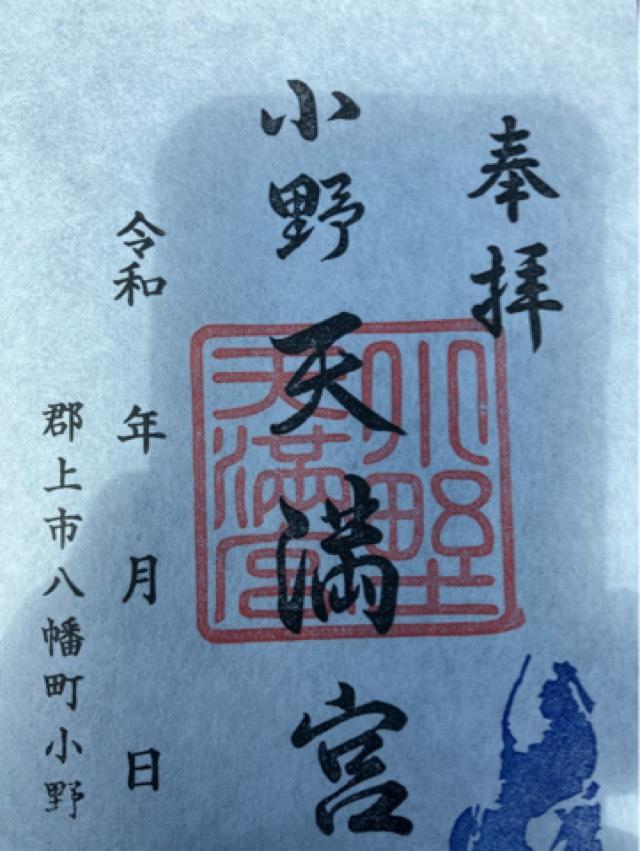 奉拝
小野天満宮
小野天満宮
令和 年 月 日
郡上市八幡町小野